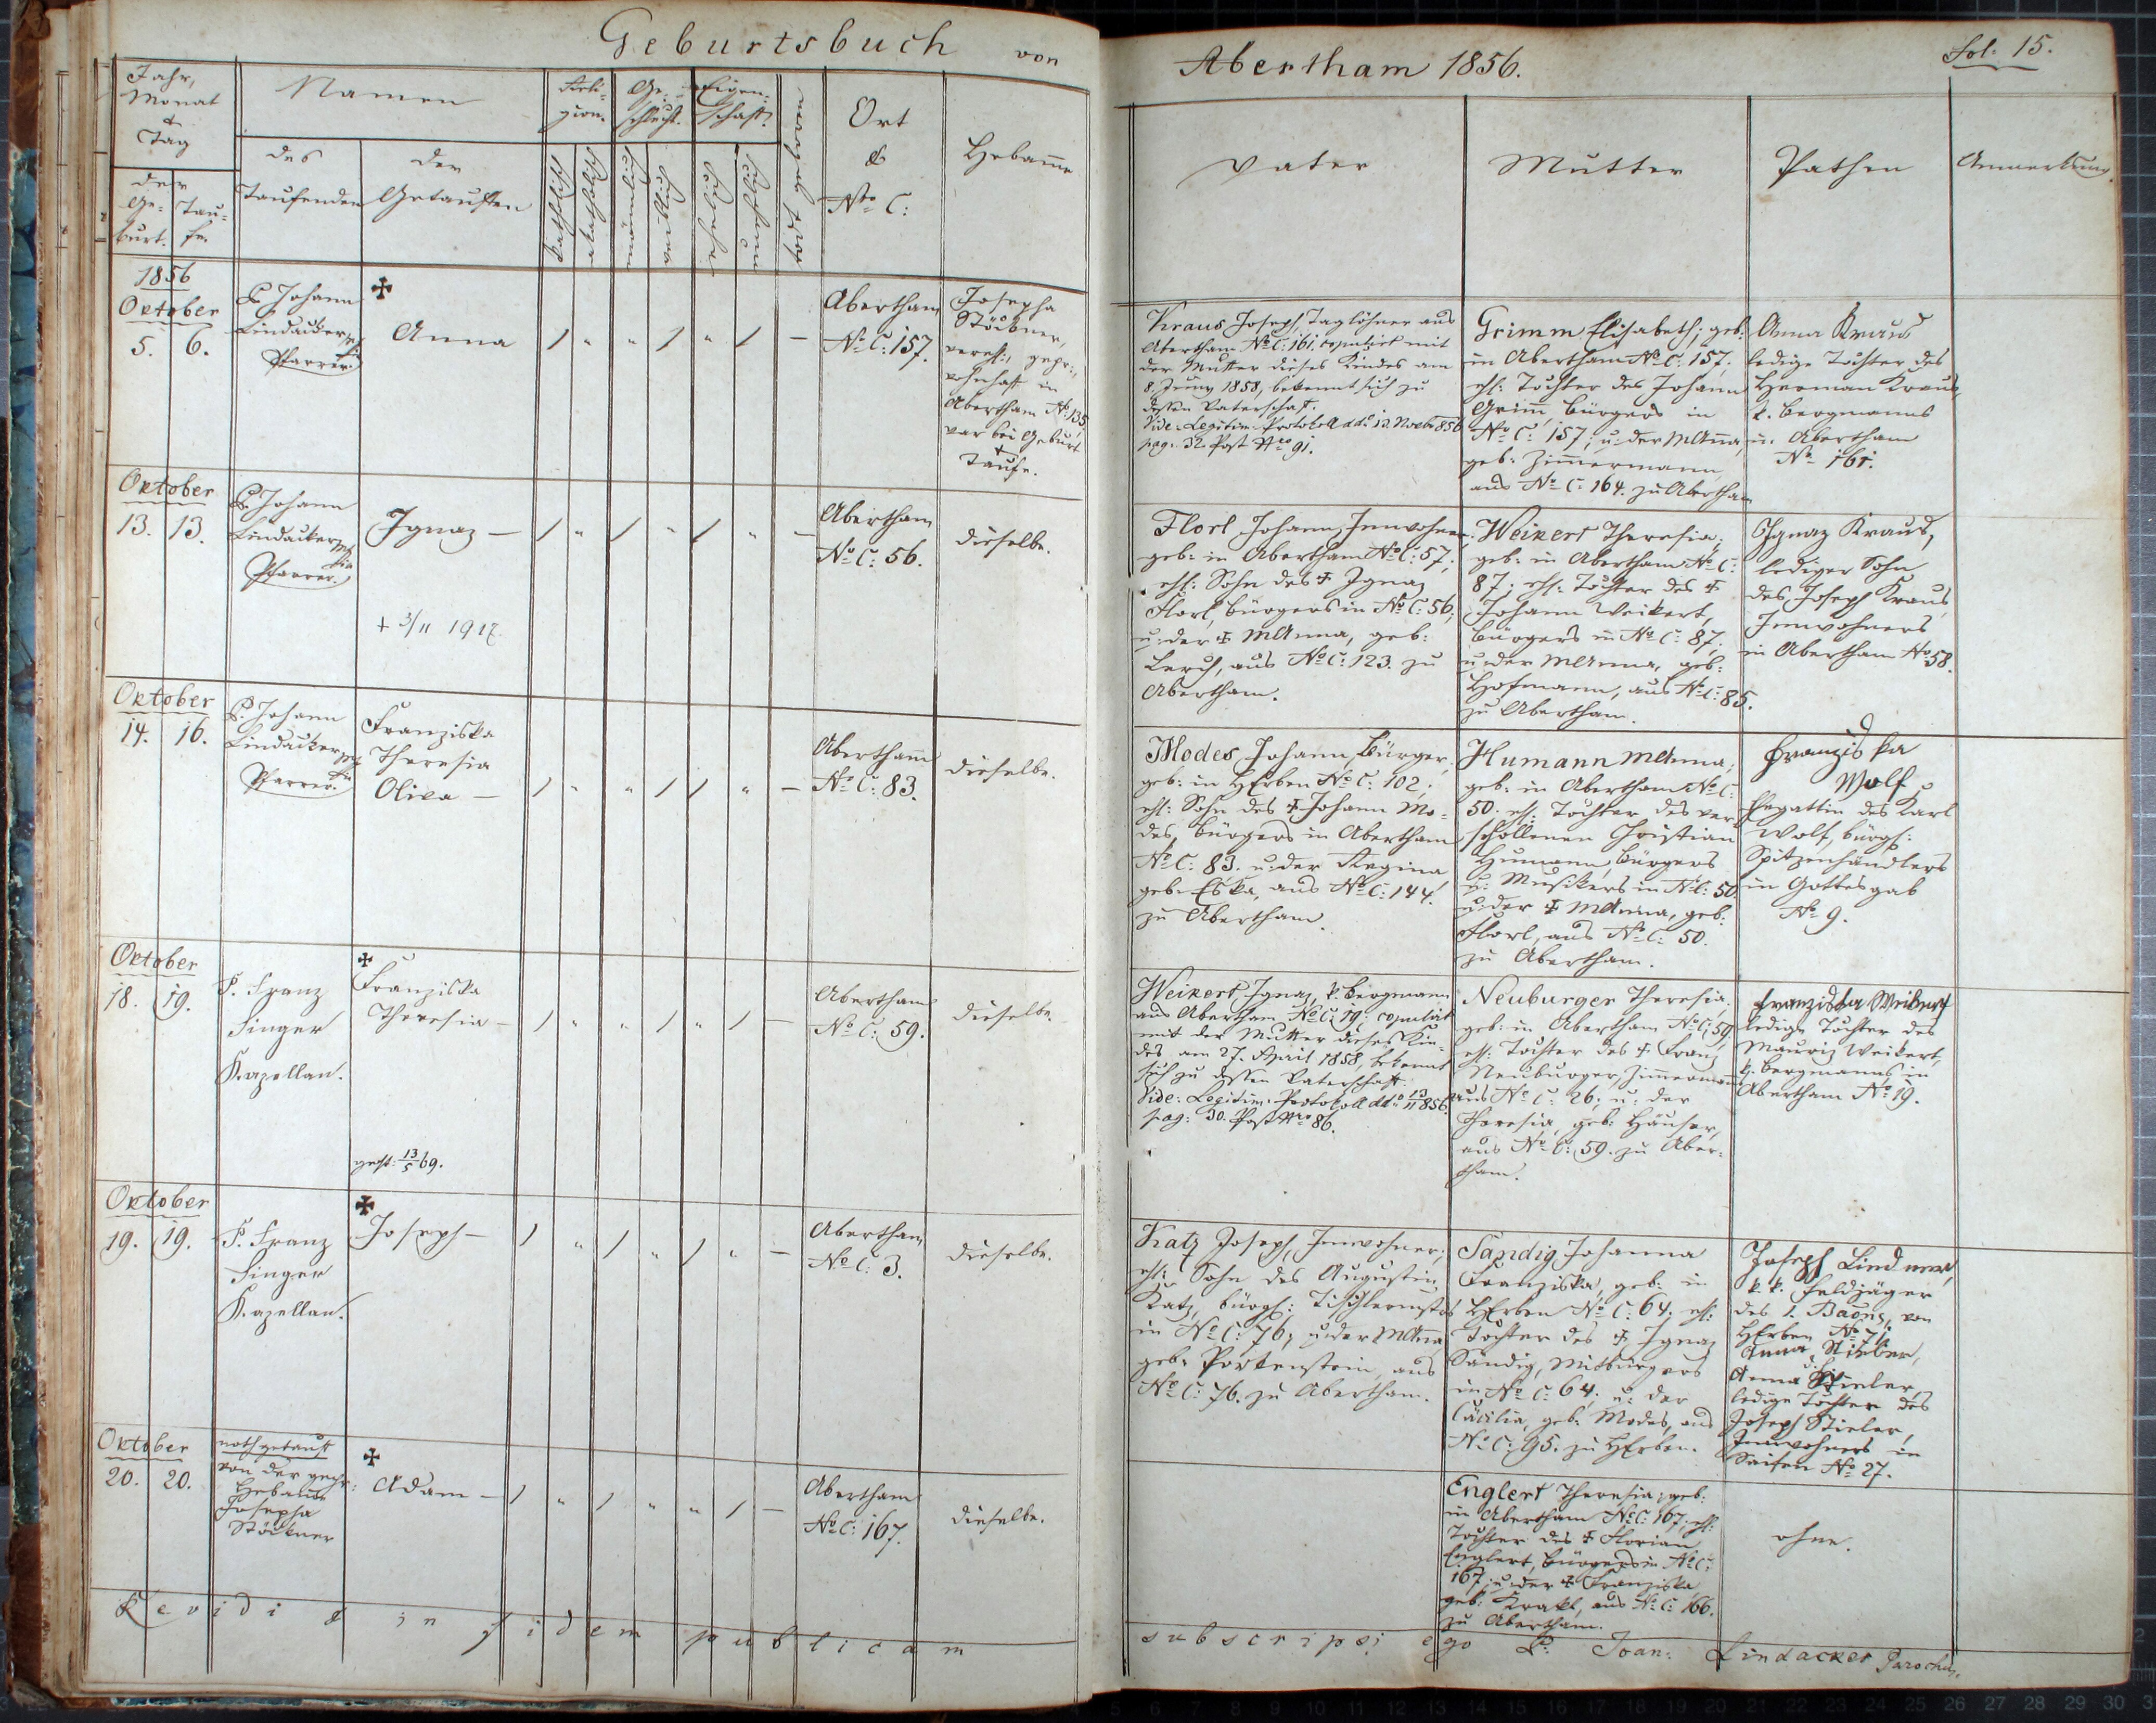 Geburtsbuch von
Jahr,
Monat
&
Tag
der
Ge-
burt.
Tau-
fe.
Namen
des
Taufenden
der
Getauften
Reli-
gion.
katholisch
akatholisch
Ge-
schlecht.
männlich
weiblich
Eigen-
schaft.
ehelich
unehelich
todt geboren
Ort
&
Nro C:
Hebamme
1856
October
5. 6.
P. Johann
Lindacker
Pfarrer.
Anna
Abertham
No C: 157.
Josepha
Stöckner,
gepr:,
wohnhaft in
Abertham No 135,
war bei Geburt
&
Taufe.
October
13. 13.
P. Johann
Lindacker
Pfarrer.
Ignaz
+ 3/11 1917.
Abertham
No C: 56.
dieselbe.
October
14. 16.
P. Johann
Lindacker
Pfarrer.
Franziska
Theresia
Oliva
Abertham
No C: 83.
dieselbe.
October
18. 19.
P. Franz
Singer
Kapellan.
Franziska
Theresia
gest: 13/5 69.
Abertham
No C: 59.
dieselbe.
October
19. 19.
P. Franz
Singer
Kapellan.
Joseph
Abertham
No C: 3.
dieselbe.
October
20. 20.
nothgetauft
von der gepr:
Hebamme
Josepha
Stöckner
Adam
Abertham
No C: 167.
dieselbe.
Revidi & in fidem publicam
Abertham 1856.
Fol: 15.
Vater
Mutter
Pathen
Anmerkung.
Kraus Joseph, Taglöhner aus
Abertham No C: 161. copulirt mit
der Mutter dieses Kindes am
8. Juny 1858, bekennt sich zu
dessen Vaterschaft.
Vide: Legitim: Protokoll ddo 12. Novbr 856
pag: 32. Post Nro 91.
Grimm Elisabeth; geb:
in Abertham No C: 157;
ehl: Tochter des Johann
Grimm, Bürgers in
No C: 157; u: der MAnna,
geb: Zimmermann,
aus No C: 164. zu Abertham
Anna Kraus
ledige Tochter des
Herman Kraus,
k. Bergmanns
in Abertham
No 161.
Florl Johann, Inwohner,
geb: in Abertham No C: 57;
ehl: Sohn des ✠ Ignaz
Florl, Bürgers in No C: 56;
u: der ✠ MAnna, geb:
Lerch, aus No C: 123. zu
Abertham.
Weikert Theresia;
geb: in Abertham No C:
87; ehl: Tochter des ✠
Johann Weikert,
Bürgers in No C: 87;
u: der MAnna, geb:
Hofmann, aus No C: 85.
zu Abertham.
Ignaz Kraus,
lediger Sohn
des Joseph Kraus
Inwohners
in Abertham No 58.
Modes Johann, Bürger,
geb: in HErben No C: 102;
ehl: Sohn des ✠ Johann Mo-
des, Bürgers in Abertham
No C: 83. u: der Regina
geb: Eska, aus No C: 144.
zu Abertham.
Humann MAnna;
geb: in Abertham No C:
50. ehl: Tochter des ver-
schollenen Christian
Humann, Bürgers
u: Musikers in No C: 50.
u: der ✠ MAnna, geb:
Florl, aus No C: 50.
zu Abertham.
Franziska
Wolf
Ehegattin des Karl
Wolf, bürgl:
Spitzenhändlers
in Gottesgab
No 9.
Weikert Ignaz, k. Bergmann
aus Abertham No C: 19: copulirt
mit der Mutter dieses Kin-
des am 27. April 1858, bekennt
sich zu dessen Vaterschaft.
Vide: Legitim: Protokoll ddo 13/11 856.
pag: 30. Post Nro 86.
Neuburger Theresia,
geb: in Abertham No C: 59
ehl: Tochter des ✠ Franz
Neuburger, Zimmermann
aus No C: 26; u: der
Theresia, geb: Häuser,
aus No C: 59. zu Aber-
tham.
Franziska Weikert
ledige Tochter des
Mauriz Weikert,
k. Bergmanns in
Abertham No 19.
Katz Joseph, Inwohner,
ehl: Sohn des Augustin
Katz, bürgl: Tischlermstrs
in No C: 76; u: der MAnna
geb: Portenstein, aus
No C: 76. zu Abertham.
Sandig Johanna
Franziska, geb: in
HErben No C: 64; ehl:
Tochter des ✠ Ignaz
Sandig, Mitbürgers
in No C: 64; u: der
Cäcilia, geb: Modes, aus
No C: 95. zu HErben.
Joseph Lindner,
k. k. Feldjäger
des 1. Baons, von
HErben No 71.
Anna Stieler,
Anna Stieler,
ledige Tochter des
Joseph Stieler,
Inwohners in
Saifen No 27.
Englert Theresia, geb:
in Abertham No C: 167; ehl:
Tochter des ✠ Florian
Englert, Bürgers in No C:
167; u: der ✠ Franziska,
geb: Krakl, aus No C: 166.
zu Abertham.
ohne.
subscripsi ego P. Joan: Lindacker Parochus.